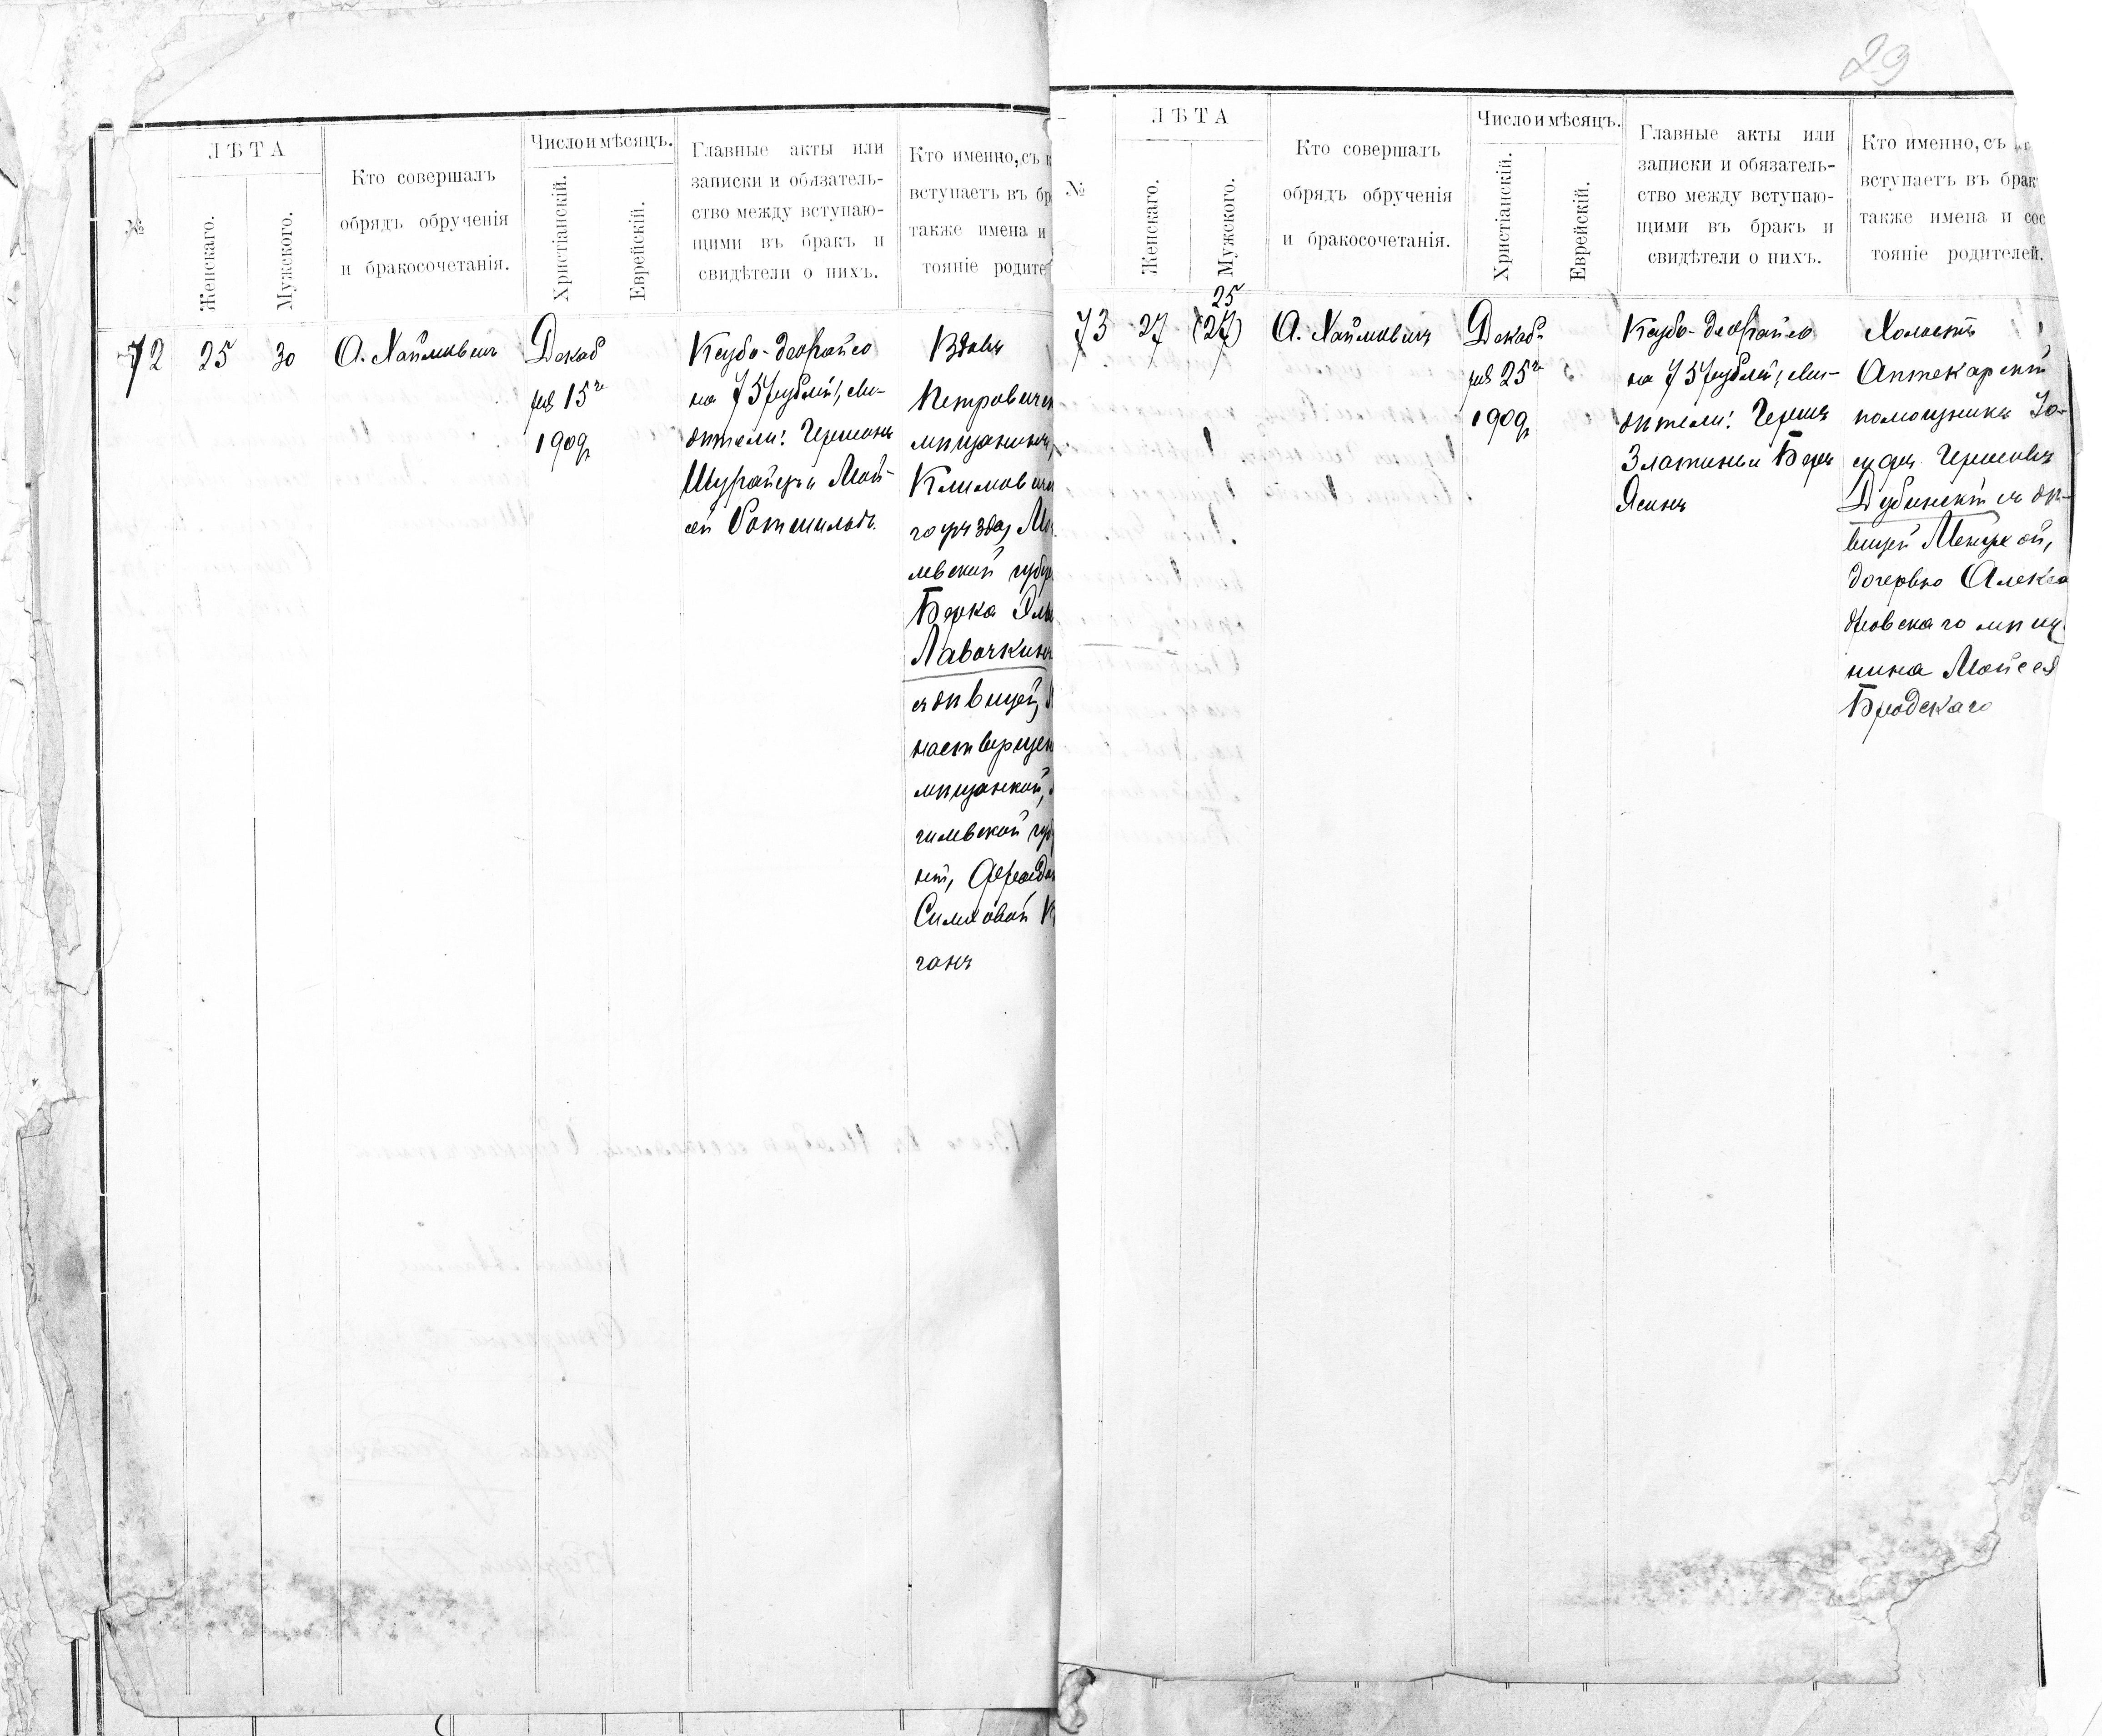 29
№
ЛѢТА
Женскаго.
Мужскаго.
Кто совершалъ
обрядъ обрученія
и бракосочетанія.
Число и мѣсяцъ.
Христіанскій.
Еврейскій.
Главные акты или
записки и обязатель-
ство между вступаю-
щими въ бракъ и
свидѣтели о нихъ.
Кто именно, съ к
вступаетъ въ бр
также имена и
тояніе родите
72
25
30
О. Хаймовичъ
Декаб
ря 15го
1909г
Ксубо-деорайсо
на 75 рублей, сви-
дѣтели: Гершонъ
и Мой-
сей Ротшильдъ.
Вдовъ
Петровичск
мѣщанинъ,
Климович
го уѣзда, Мо
левской губер
Берка Эль
Лавочкинъ
съ дѣвицей,
мѣщанкой,
гилевской губ
Симховой К
ганъ
№
ЛѢТА
Женскаго.
Мужского.
Кто совершалъ
обрядъ обрученія
и бракосочетанія.
Число и мѣсяцъ.
Христіанскій.
Еврейскій.
Главные акты или
записки и обязатель-
ство между вступаю-
щими въ бракъ и
свидѣтели о нихъ.
Кто именно, съ
вступаетъ въ брак
также имена и сос
тояніе родителей.
73
27
25
(27)
О. Хаймовичъ
Декаб
ря 25го
1909г
Ксубо-деорайсо
на 75 рублей, сви-
дѣтели: Гершъ
Златинъ и Беръ
Ясинъ
Холостъ
Аптекарскій
помощникъ Іо-
сифъ Гершовъ
Дубинскій съ дѣ-
вицей Менухой,
дочерью Алекса
дровскаго мѣща
нина Мойсея
Бродскаго